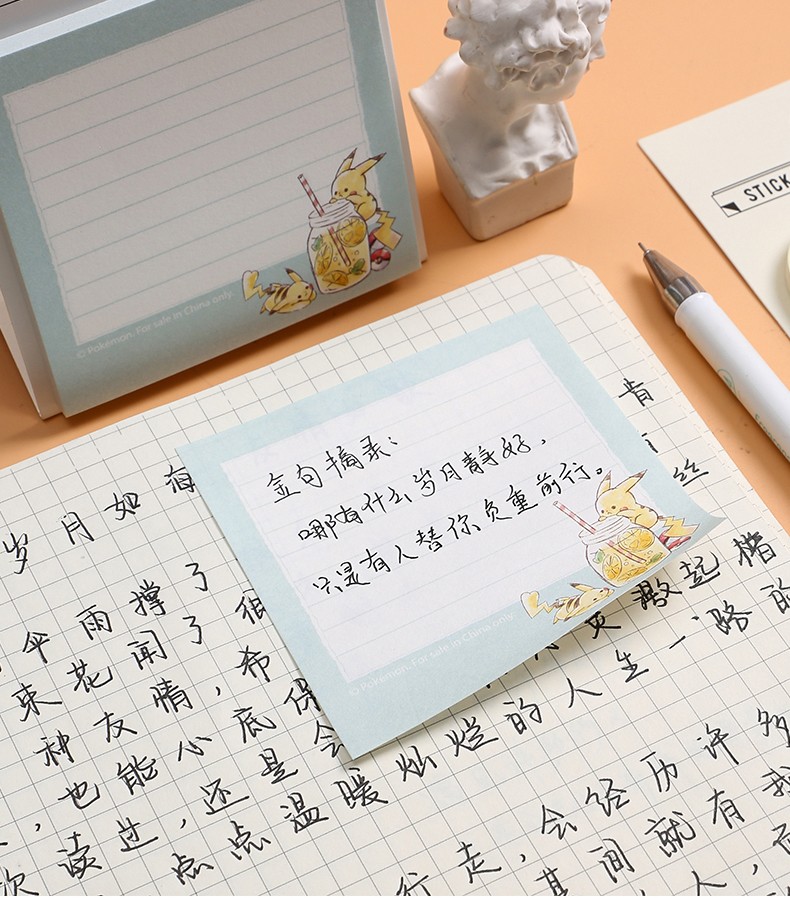 © Pokémon. For sale in China only.
STICK
金句摘录:
哪有什么岁月静好,
只是有人替你负重前行。
© Pokémon. For sale in China only.
肯
岁月如海
丝
伞雨撑了
束花闻了很
激起槽
种友情,希
人生一路的
,也能心底保
灿烂的
读过,还是会
点点温暖
会经历许多
行走,
其间就有我
人,而